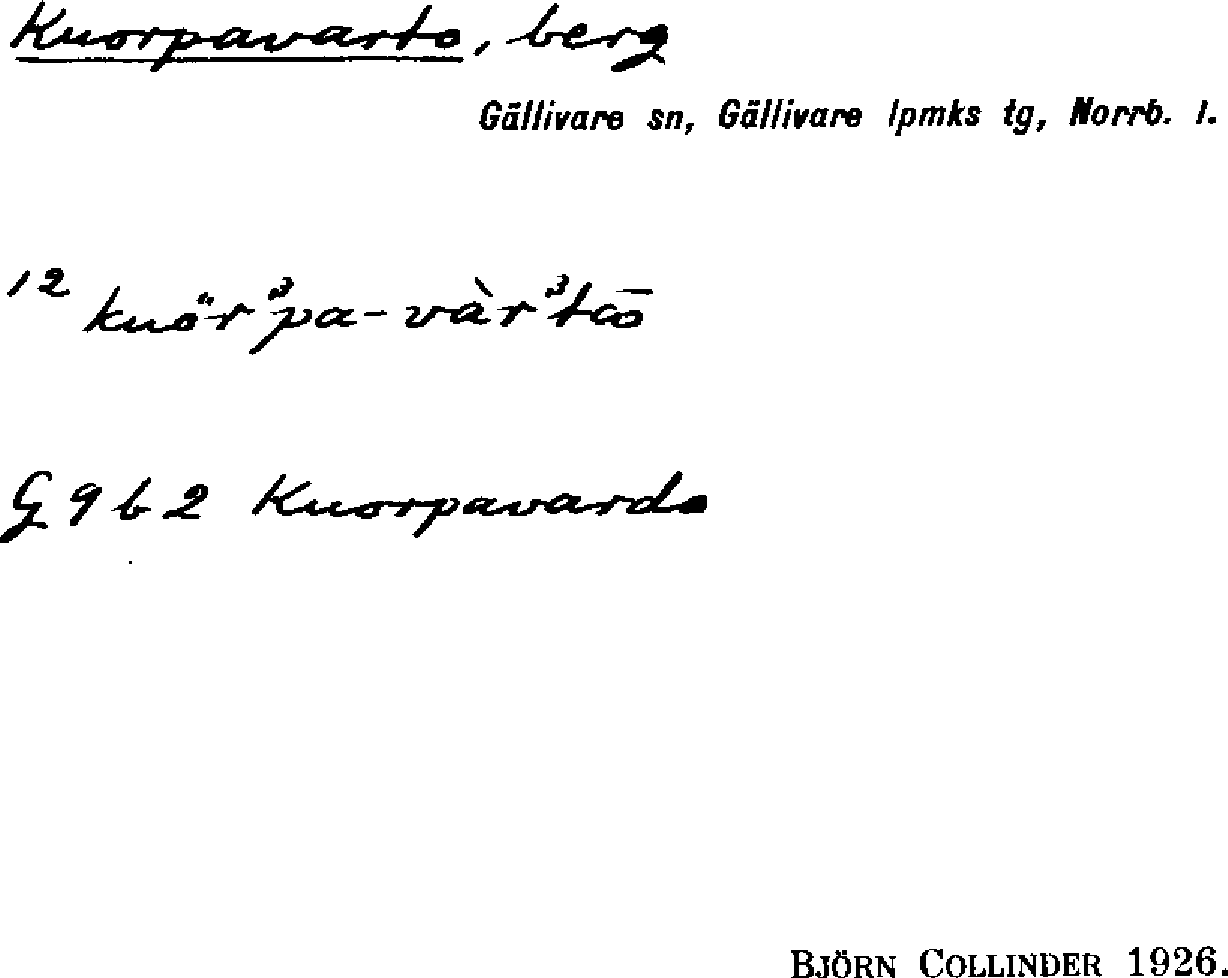 Kuorpavarto, berg
Gällivare sn, Gällivare lpmks tg, Norrb. l.
12
G 9 b 2 Kuorpavardo
BJÖRN COLLINDER 1926.